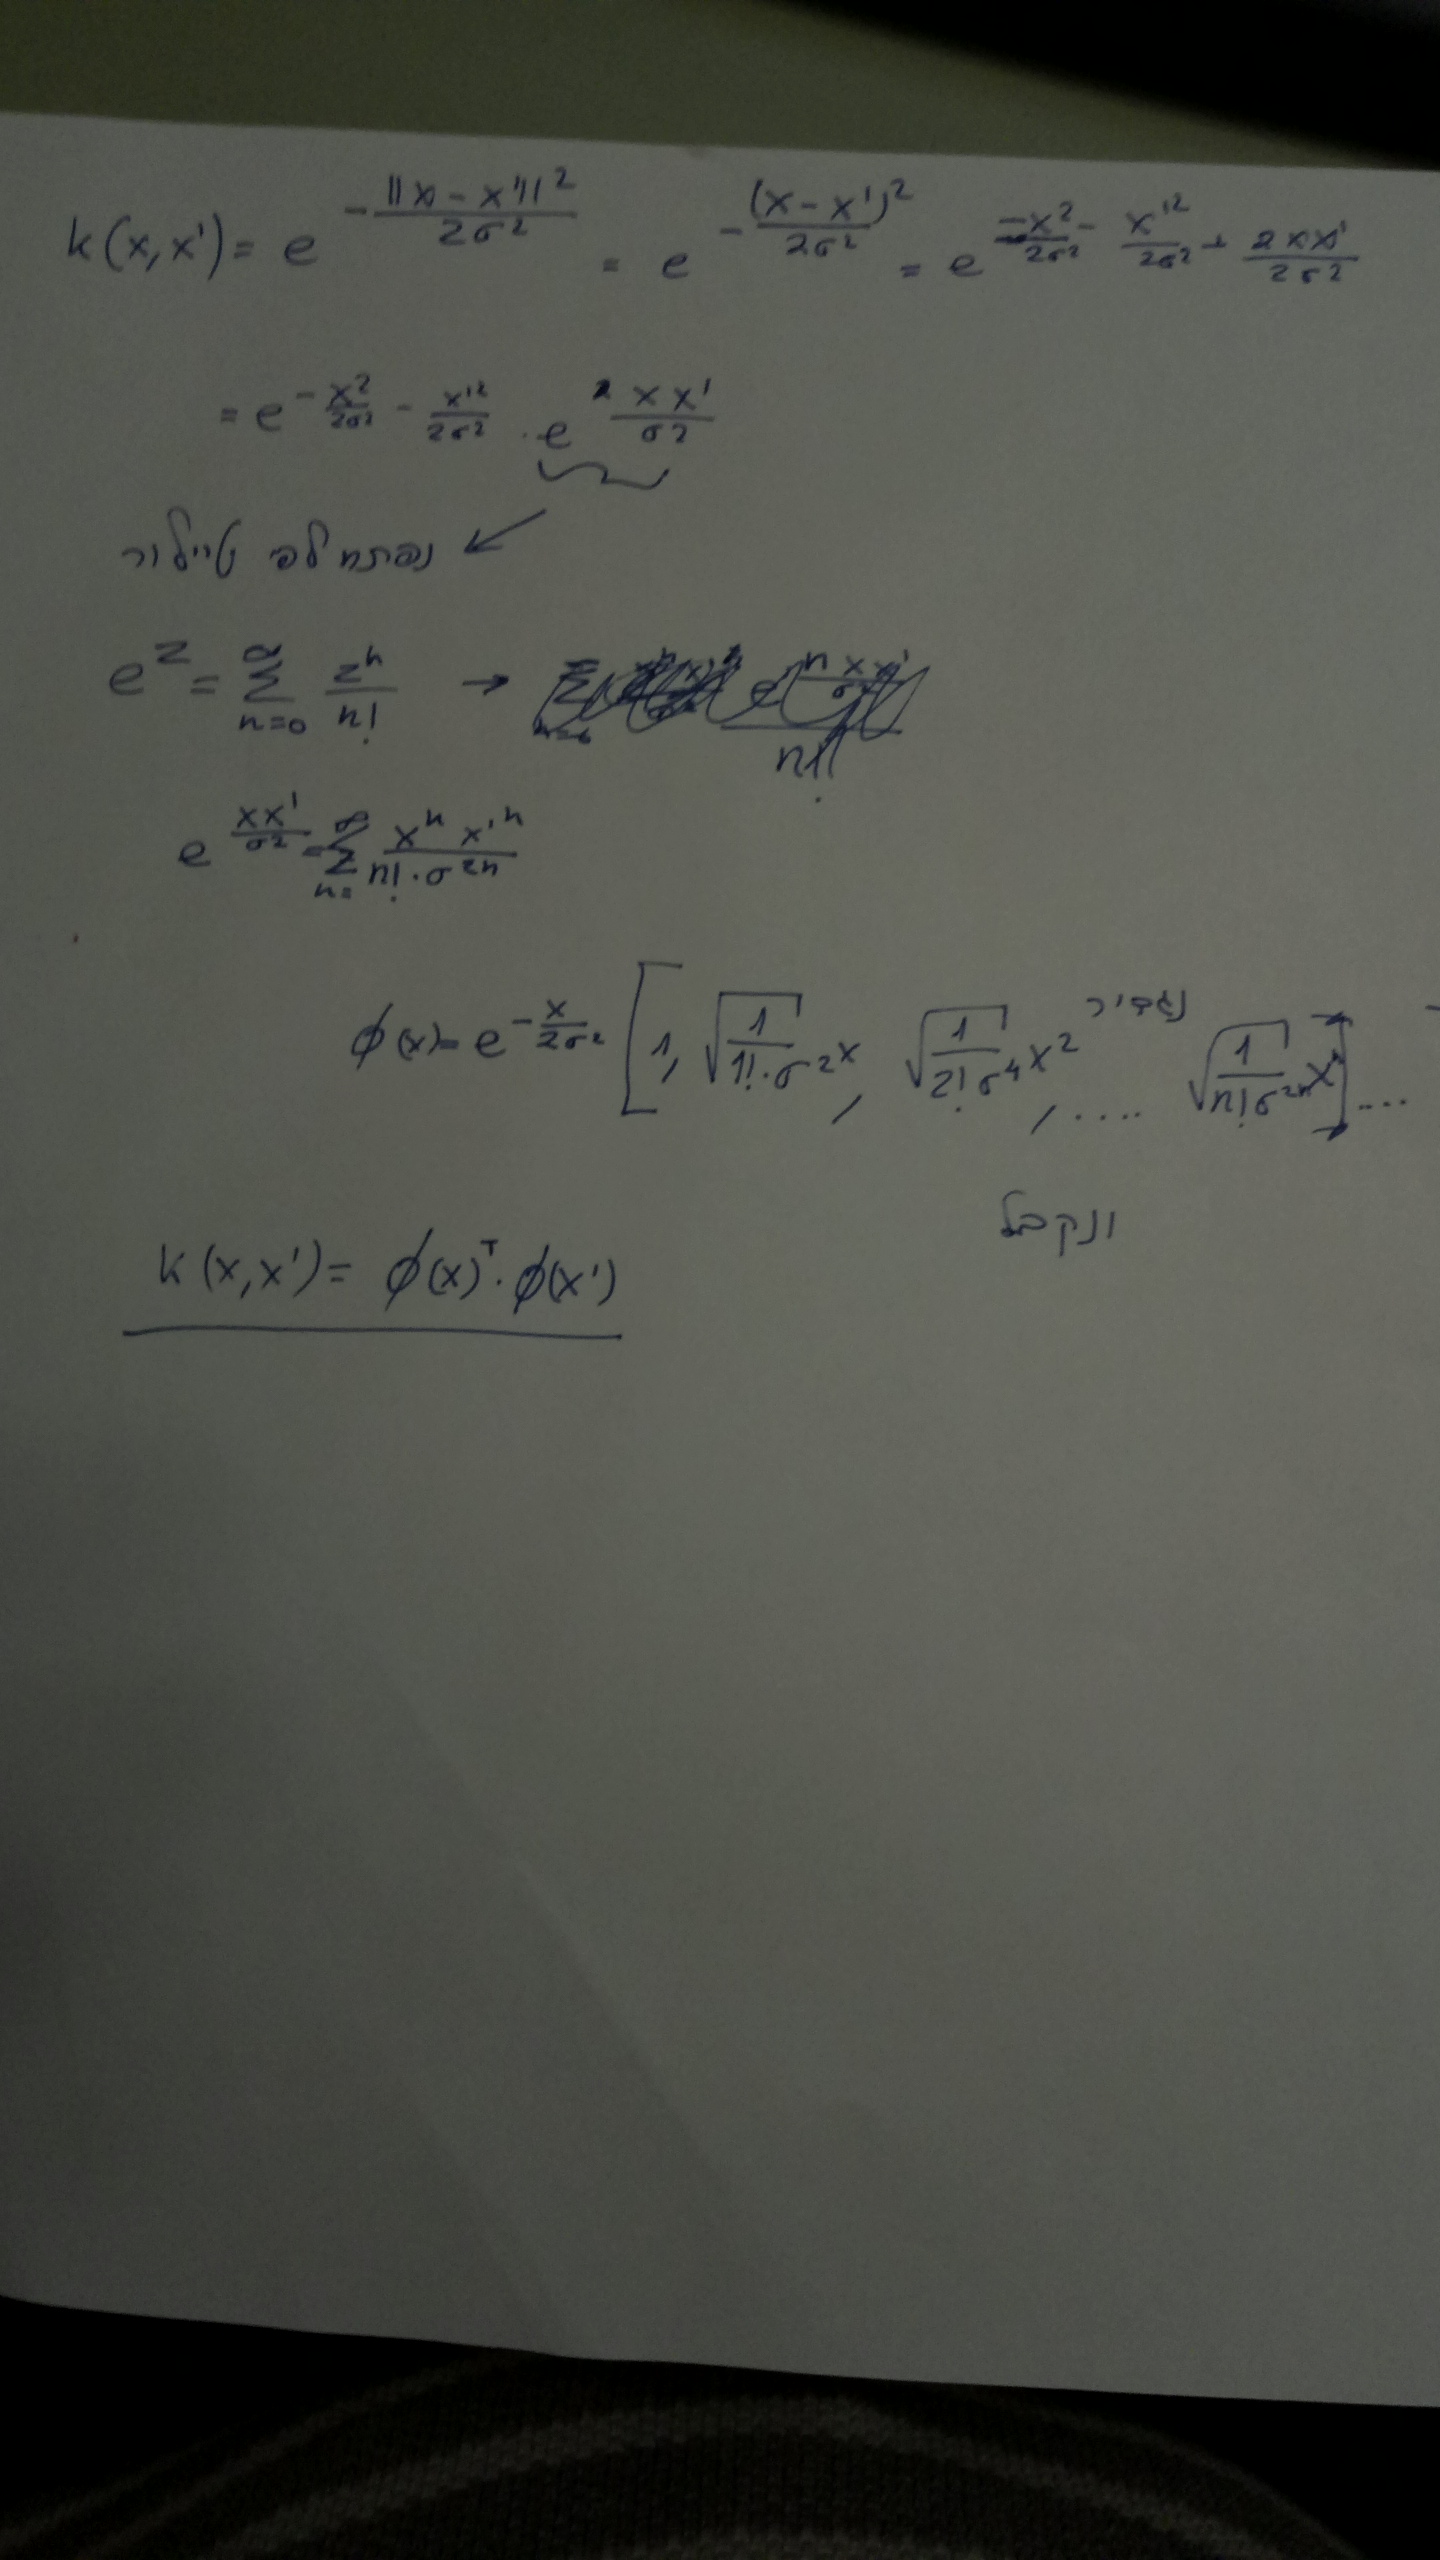 k(x,x') = e^{-\frac{||x-x'||^2}{2σ^2}} = e^{-\frac{(x-x')^2}{2σ^2}} = e^{-\frac{x^2}{2σ^2} - \frac{x'^2}{2σ^2} + \frac{2xx'}{2σ^2}}
= e^{-\frac{x^2}{2σ^2} - \frac{x'^2}{2σ^2}} · e^{\frac{xx'}{σ^2}}
נפתח לפי טיילור
e^z = \sum_{n=0}^{∞} \frac{z^n}{n!} → n!
e^{\frac{xx'}{σ^2}} = \sum_{n=}^{∞} \frac{x^n x'^n}{n! · σ^{2n}}
נגדיר
φ(x) = e^{-\frac{x}{2σ^2}} [1, \sqrt{\frac{1}{1!·σ^2}} x, \sqrt{\frac{1}{2!σ^4}} x^2, .... \sqrt{\frac{1}{n!σ^{2n}}} x^n] ....
ונקבל
k(x,x') = φ(x)^T · φ(x')